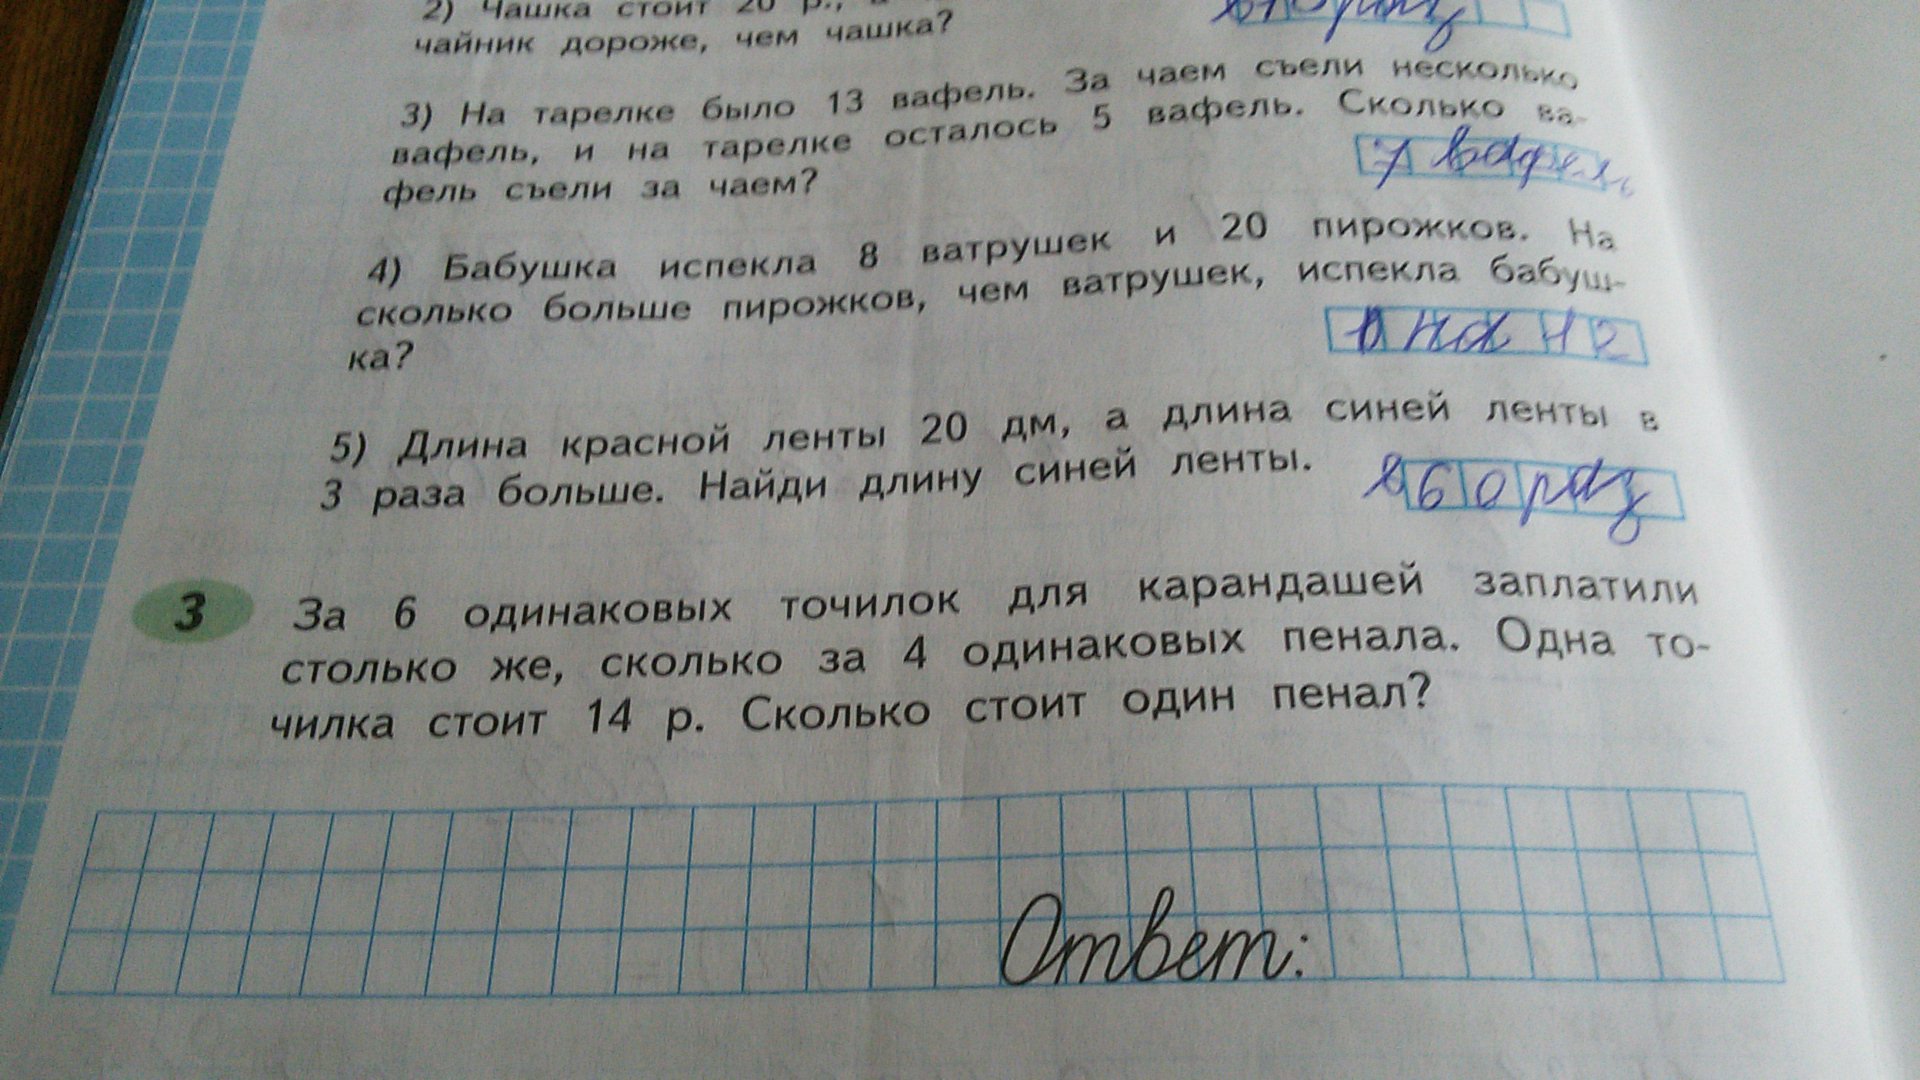 2) Чашка стоит 20 р.,
чайник дороже, чем чашка?
3) На тарелке было 13 вафель. За чаем съели несколько
вафель, и на тарелке осталось 5 вафель. Сколько ва-
фель съели за чаем?
7 вафель
4) Бабушка испекла 8 ватрушек и 20 пирожков. На
сколько больше пирожков, чем ватрушек, испекла бабуш-
ка?
на 12
5) Длина красной ленты 20 дм, а длина синей ленты в
3 раза больше. Найди длину синей ленты.
в 60 раз
3 За 6 одинаковых точилок для карандашей заплатили
столько же, сколько за 4 одинаковых пенала. Одна то-
чилка стоит 14 р. Сколько стоит один пенал?
Ответ: